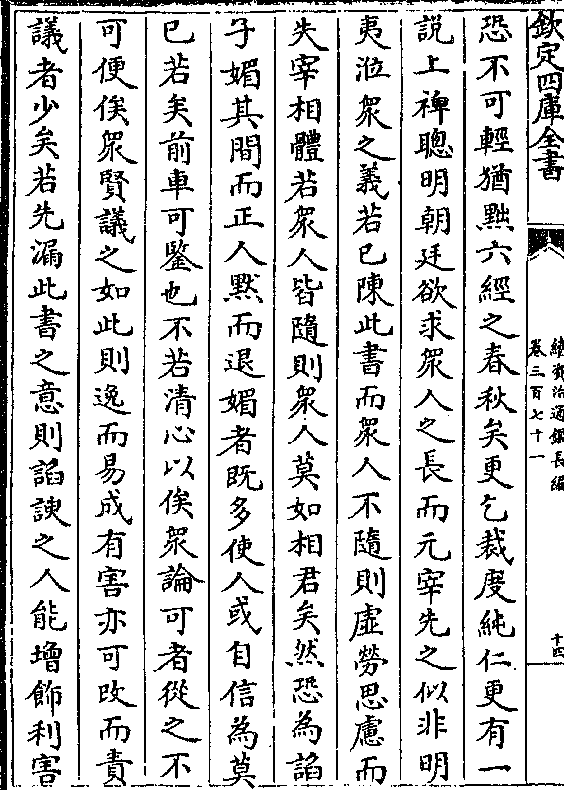 欽定四庫全書
續資治通鑑長編
卷三百七十一
十四
恐不可輕猶黜六經之春秋矣更乞裁度純仁更有一
説上禆聰明朝廷欲求衆人之長而元宰先之似非明
夷涖衆之義若已陳此書而衆人不隨則虛勞思慮而
失宰相體若衆人皆隨則衆人莫如相君矣然恐為諂
子媚其間而正人黙而退媚者既多使人或自信為莫
已若矣前車可鑒也不若清心以俟衆論可者從之不
可便俟衆賢議之如此則逸而易成有害亦可改而責
議者少矣若先漏此書之意則諂諛之人能增飾利害